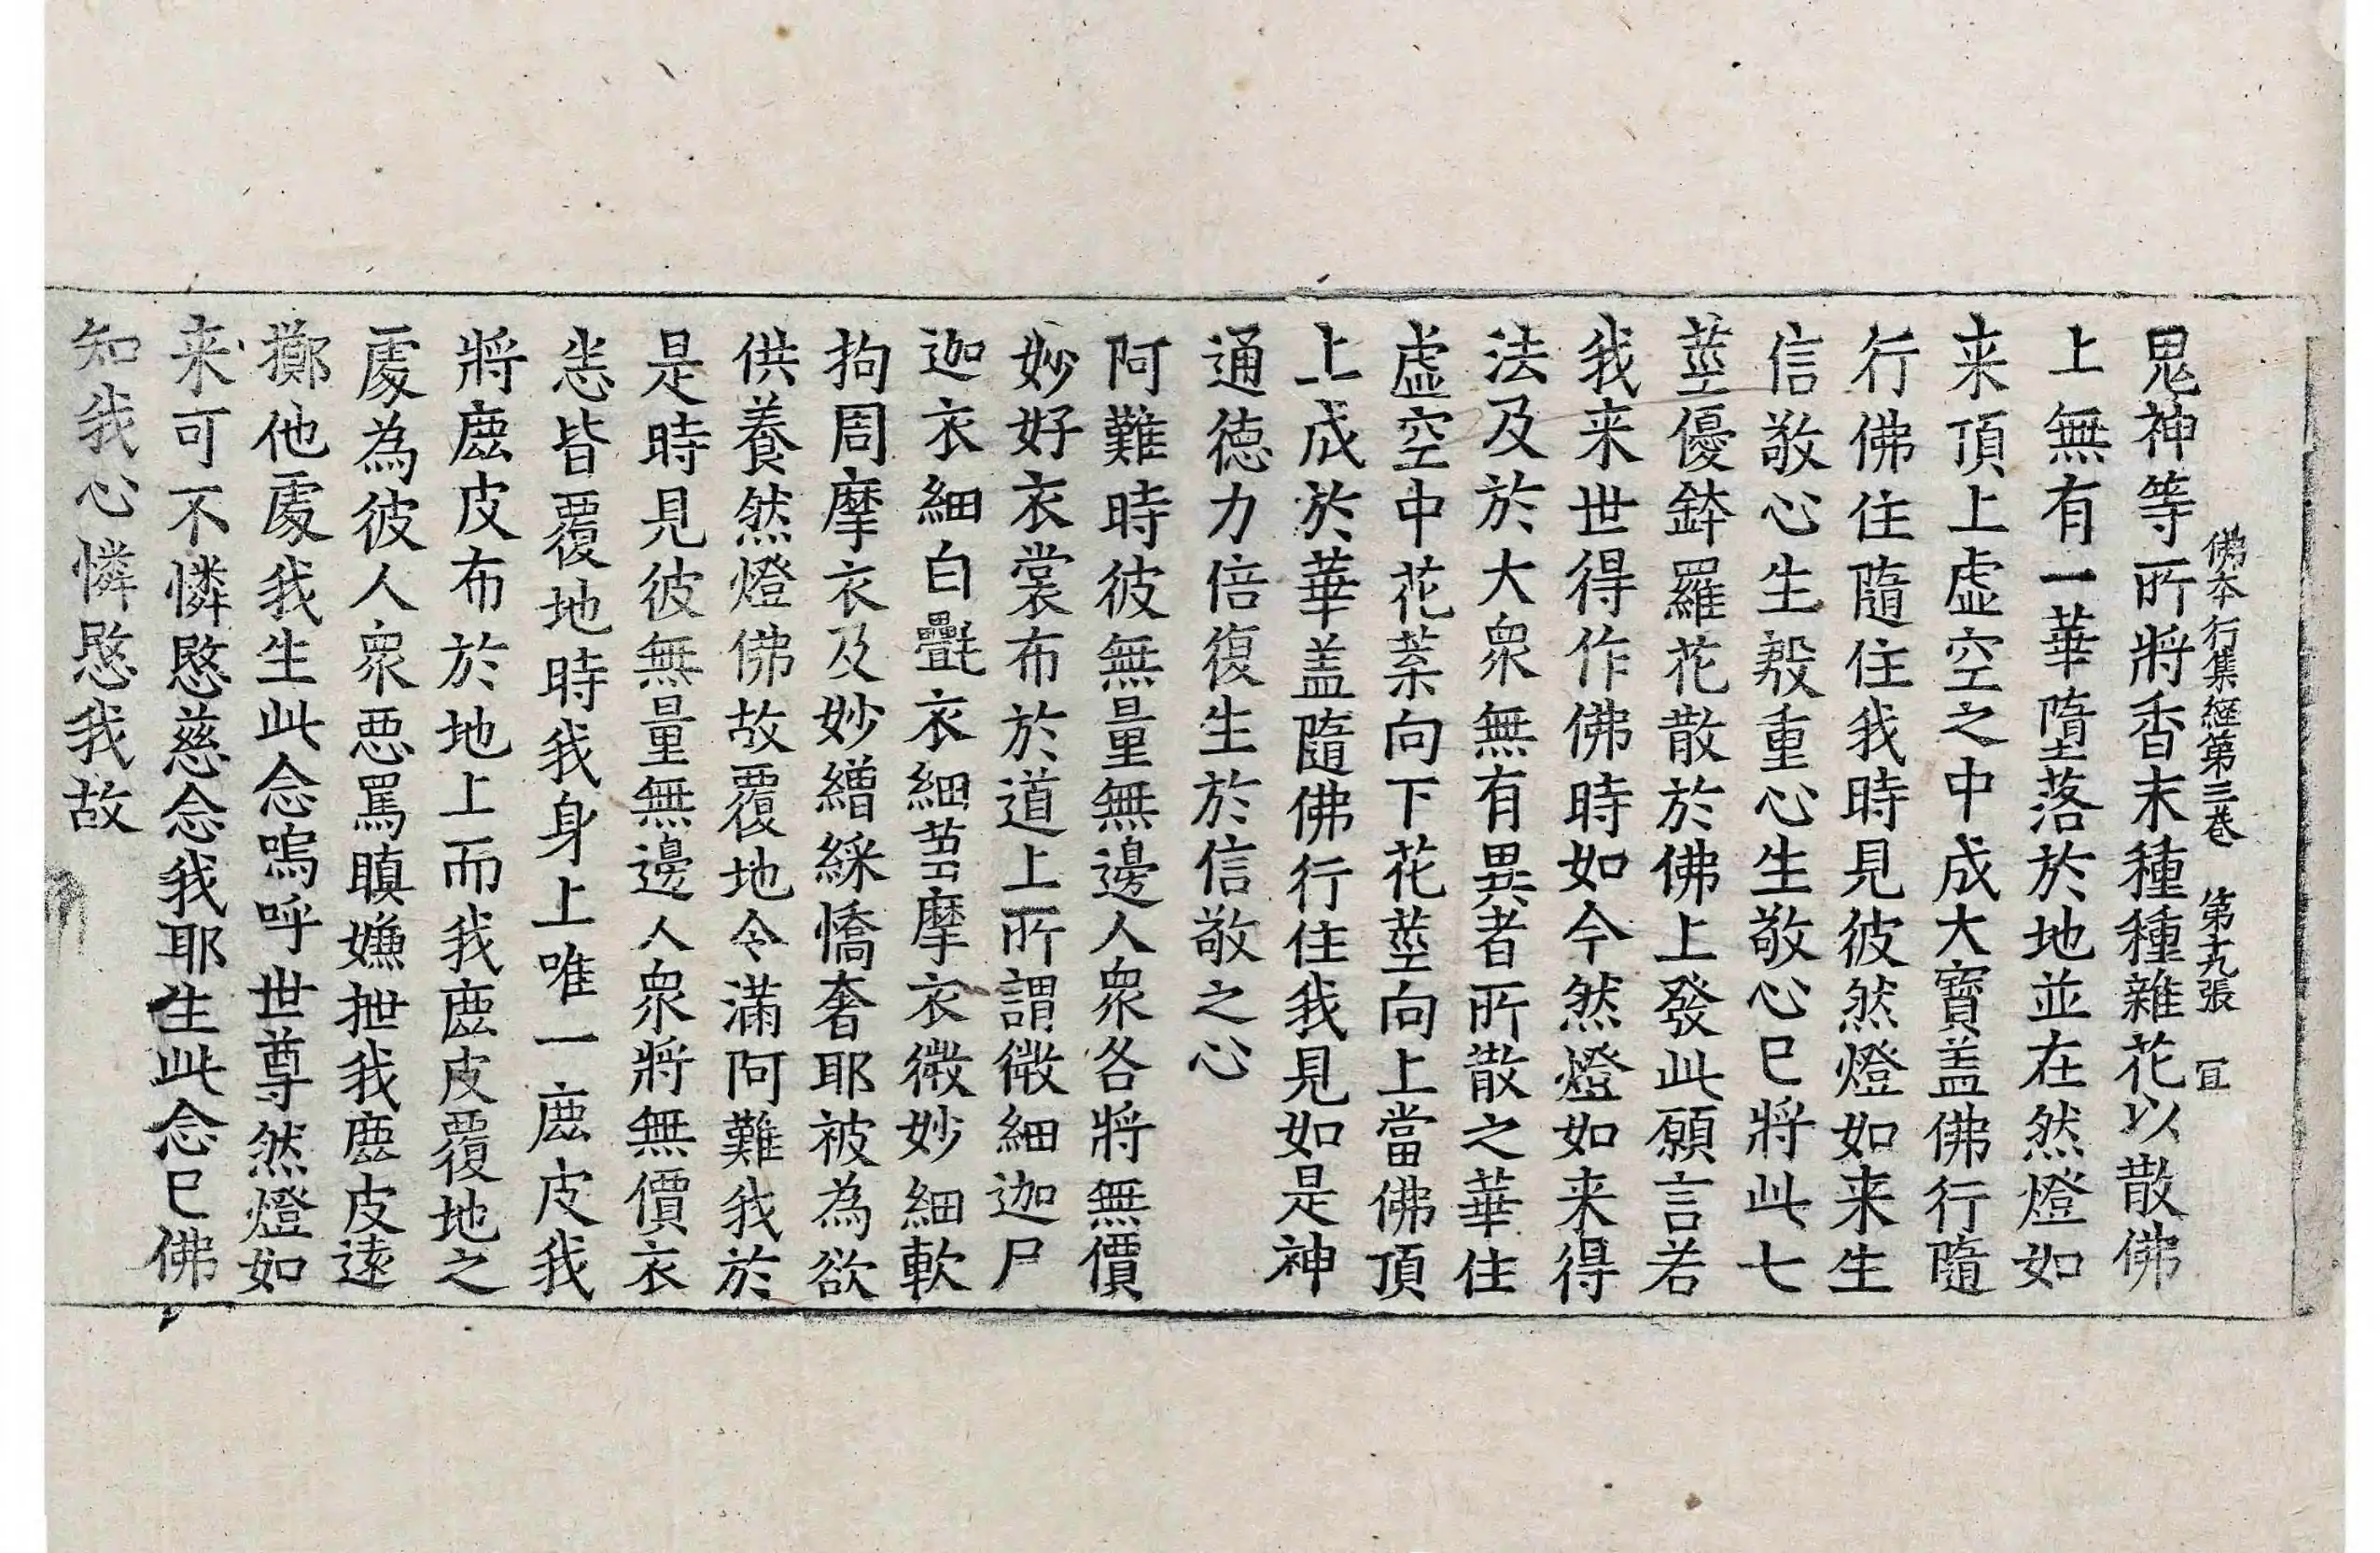 佛本行集經第三卷 第十九張 宜
鬼神等所將香末種種雜花以散佛
上無有一華墮落於地並在然燈如
来頂上虛空之中成大寶盖佛行隨
行佛住隨住我時見彼然燈如来生
信敬心生殷重心生敬心已將此七
莖優鉢羅花散於佛上發此願言若
我来世得作佛時如今然燈如来得
法及於大衆無有異者所散之華住
虛空中花葉向下花莖向上當佛頂
上成於華盖隨佛行住我見如是神
通德力倍復生於信敬之心
阿難時彼無量無邊人衆各將無價
妙好衣裳布於道上所謂微細迦尸
迦衣細白疊衣細芻摩衣微妙細軟
拘周摩衣及妙繒綵憍奢耶被為欲
供養然燈佛故覆地令滿阿難我於
是時見彼無量無邊人衆將無價衣
悉皆覆地時我身上唯一鹿皮我
將鹿皮布於地上而我鹿皮覆地之
處為彼人衆惡罵瞋嫌抴我鹿皮遠
擲他處我生此念嗚呼世尊然燈如
来可不憐愍慈念我耶生此念已佛
知我心憐愍我故